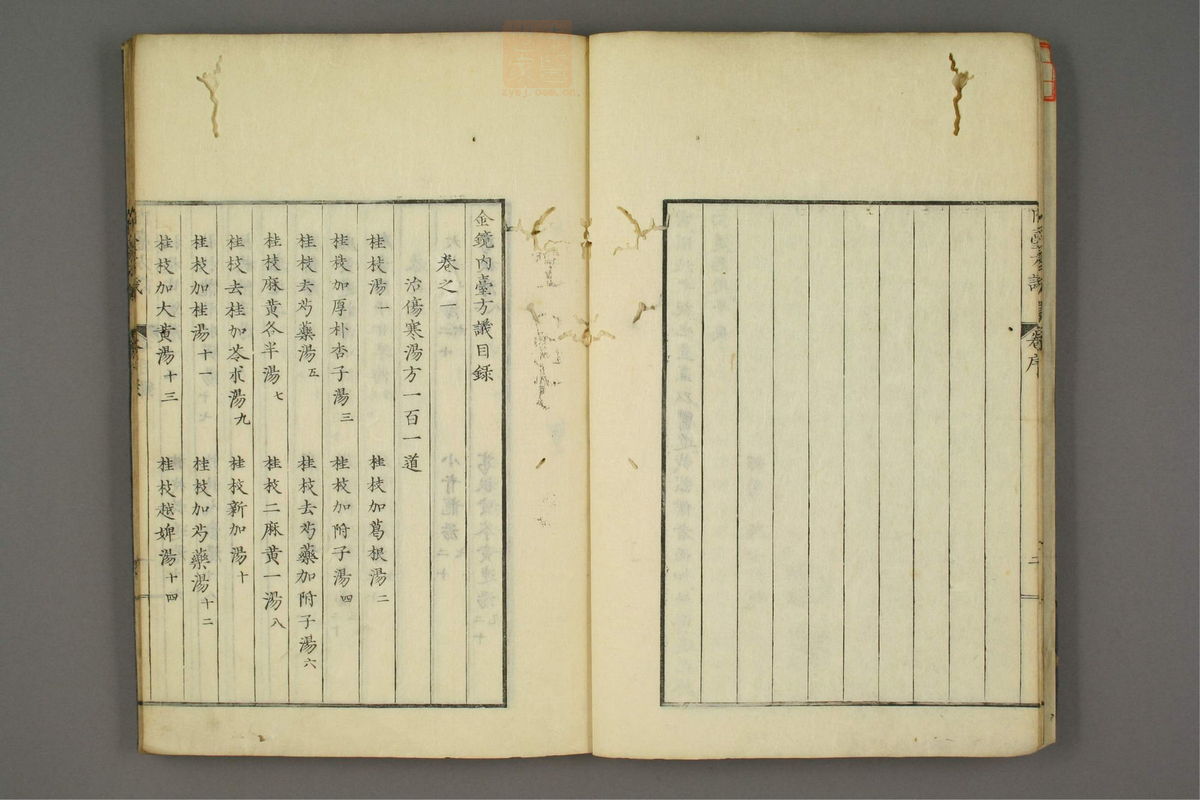 金鏡內臺方議目録
卷之一
治傷寒湯方一百一道
桂枝湯一
桂枝加葛根湯二
桂枝加厚朴杏子湯三
桂枝加附子湯四
桂枝去芍藥湯五
桂枝去芍藥加附子湯六
桂枝麻黃各半湯七
桂枝二麻黃一湯八
桂枝去桂加苓朮湯九
桂枝新加湯十
桂枝加桂湯十一
桂枝加芍藥湯十二
桂枝加大黃湯十三
桂枝越婢湯十四
序
二
zysj.com.cn